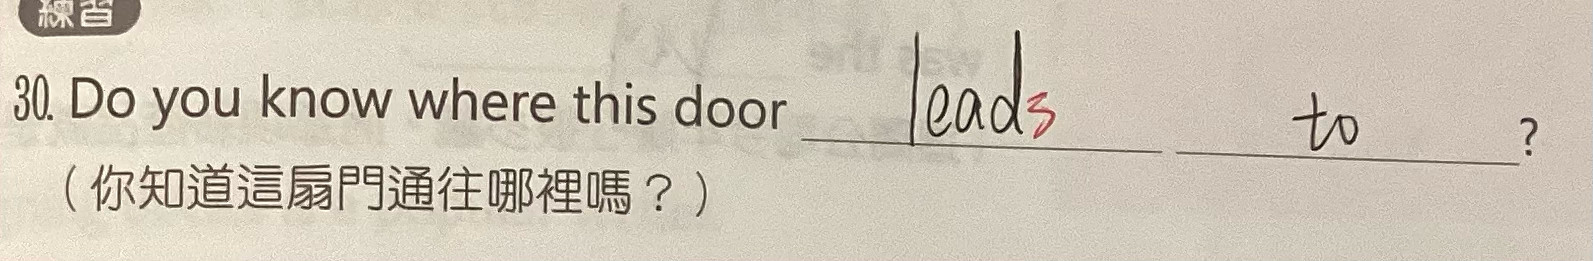 練習
30. Do you know where this door leads to ?
（你知道這扇門通往哪裡嗎？）